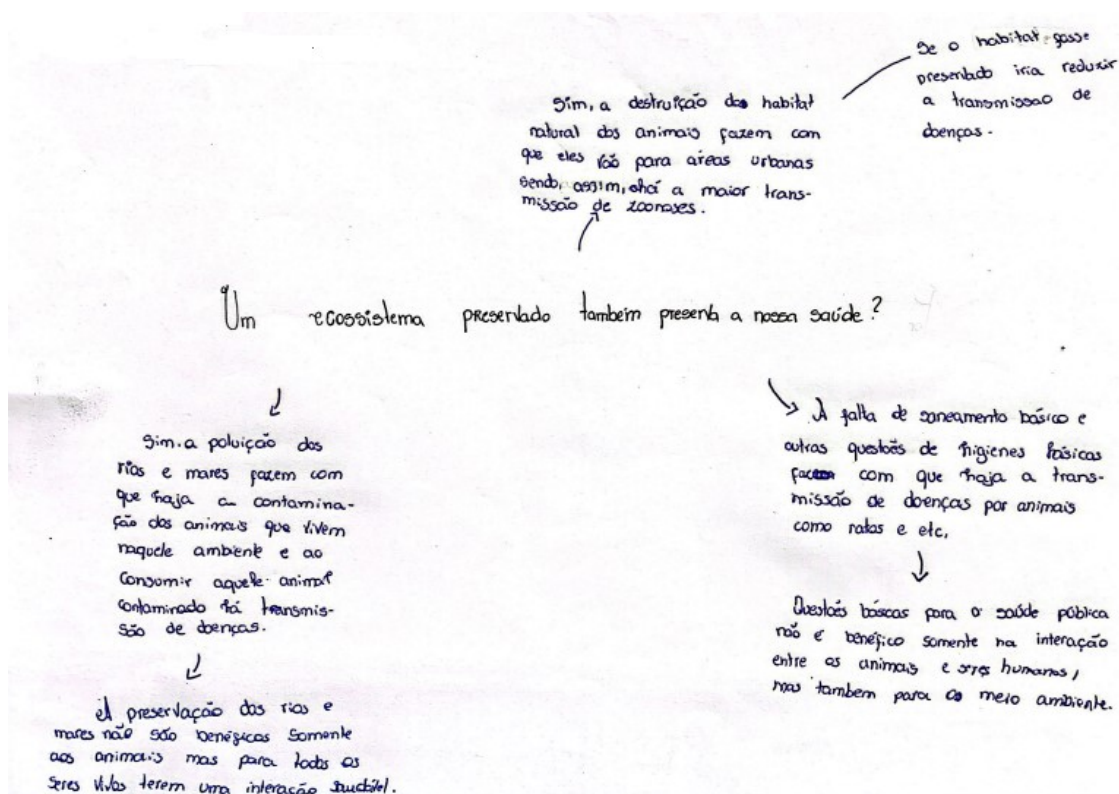 Se o habitat fosse
preservado iria reduzir
a transmissao de
doenças.
Sim, a destruição dos habitat
natural dos animais fazem com
que eles vão para áreas urbanas
sendo, assim, há a maior trans-
missão de zoonoses.
Um ecossistema preservado também preserva a nossa saúde?
Sim. a poluição dos
rios e mares fazem com
que haja a contamina-
ção dos animais que vivem
naquele ambiente e ao
consumir aquele animal
contaminado há transmis-
são de doenças.
A preservação dos rios e
mares não são benéficas somente
aos animais mas para todos os
seres vivos terem uma interação saudável.
A falta de saneamento básico e
outras questões de higienes básicas
fazem com que haja a trans-
missão de doenças por animais
como ratos e etc,
Questões báscas para o saúde pública
não é benéfico somente na interação
entre os animais e seres humanos,
mas tambem para os meio ambiente.